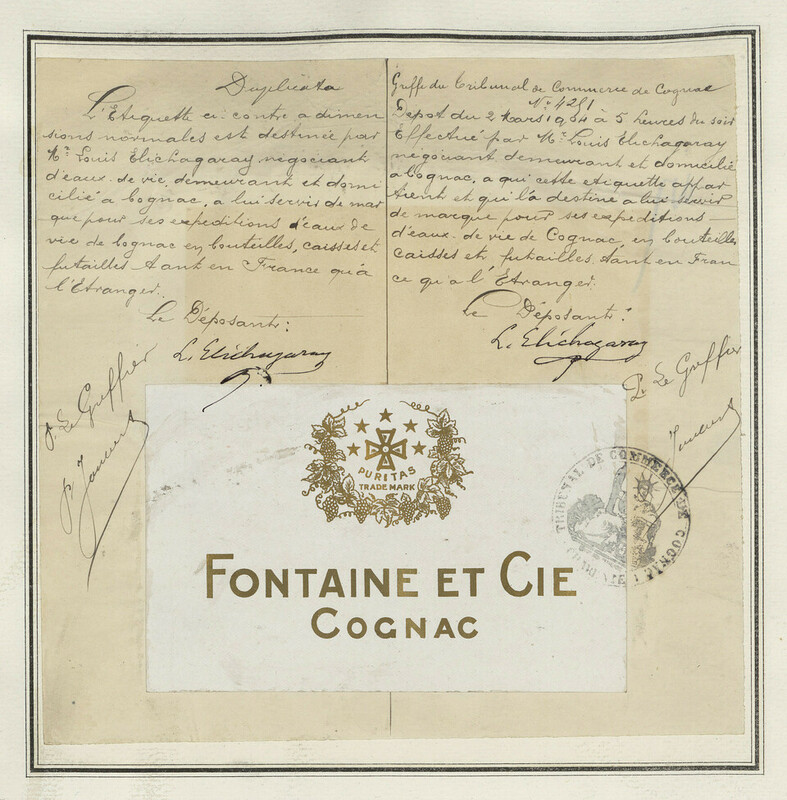 Duplicata
L'Etiquette ci-contre a dimen
sions normales est destinée par
Mr Louis Elichagaray négociant
d'eaux-de-vie, demeurant et domi
cilié à Cognac, à lui servir de mar
que pour ses expeditions d'eaux de
vie de Cognac en bouteilles, caisses et
futailles tant en France qu'à
l'Etranger.
Le Déposant:
L. Elichagaray
P. Le Greffier
Greffe du Tribunal de Commerce de Cognac
No
Depot du 2 Mars à 5 heures du soir
Effectué par Mr Louis Elichagaray
négociant demeurant et domicilié
à Cognac, à qui cette etiquette appar
tient et qui l'a destine a lui servir
de marque pour ses expeditions
d'eaux-de-vie de Cognac, en bouteilles
caisses et futailles, tant en Fran
ce qu'a l'Etranger.
Le Déposant:
L. Elichagaray
P. Le Greffier
PURITAS
TRADE MARK
FONTAINE ET CIE
COGNAC
TRIBUNAL DE COMMERCE DE COGNAC